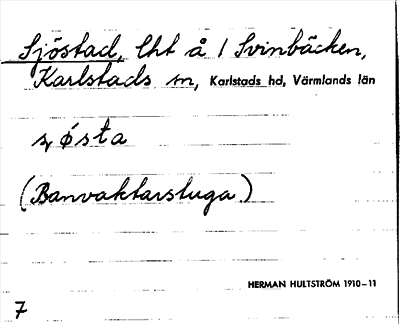 Sjöstad, lht å 1 Svinbäcken,
Karlstads sn, Karlstads hd, Värmlands län
ȿø̀sta
(Banvaktarstuga)
HERMAN HULTSTRÖM 1910–11
7